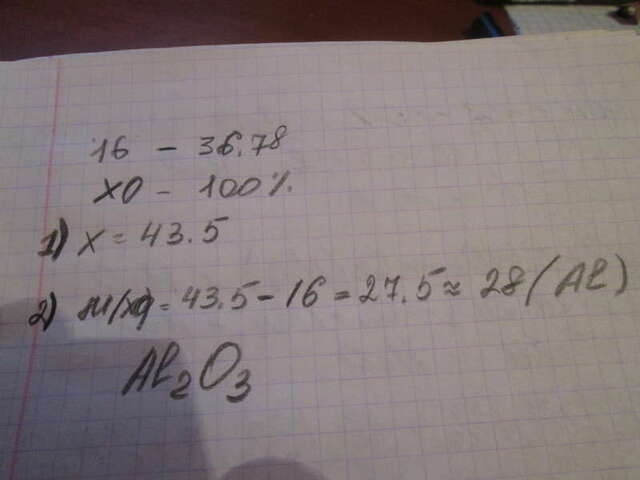 16 - 36.78
XO - 100%.
1) X = 43.5
2) = 43.5 - 16 = 27.5 ≈ 28 (Al)
Al₂O₃